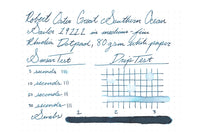 Robert Oster Great Southern Ocean
Sailor 1911L in medium-fine
Rhodia Dotpad, 80 gram white paper
Smear Test Drip Test
seconds
seconds
seconds
seconds
Swabs 1 2 3